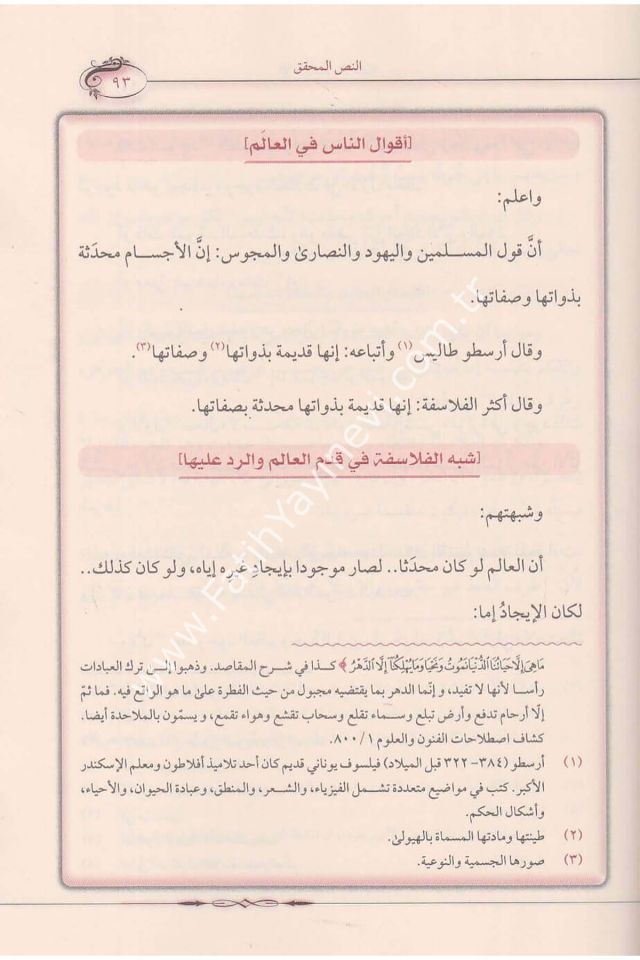 النص المحقق
٩٣
[أقوال الناس في العالَم]
واعلم:
أنَّ قول المسلمين واليهود والنصارىٰ والمجوس: إنَّ الأجسام محدَثة
بذواتها وصفاتها.
وقال أرسطو طاليس(١) وأتباعه: إنها قديمة بذواتها(٢) وصفاتها(٣).
وقال أكثر الفلاسفة: إنها قديمة بذواتها محدثة بصفاتها.
[شبه الفلاسفة في قدم العالم والرد عليها]
وشبهتهم:
أن العالم لو كان محدَثا.. لصار موجودا بإيجادِ غيره إياه، ولو كان كذلك..
لكان الإيجادُ إما:
مَا هِيَ إِلَّا حَيَاتُنَا الدُّنْيَا نَمُوتُ وَنَحْيَا وَمَا يُهْلِكُنَا إِلَّا الدَّهْرُ﴾ كذا في شرح المقاصد. وذهبوا إلى ترك العبادات
رأسا لأنها لا تفيد، و إنّما الدهر بما يقتضيه مجبول من حيث الفطرة علىٰ ما هو الواقع فيه. فما ثمّ
إلّا أرحام تدفع وأرض تبلع وسماء تقلع وسحاب تقشع وهواء تقمع، و يسمّون بالملاحدة أيضا.
كشاف اصطلاحات الفنون والعلوم ١/ ٨٠٠.
(١) أرسطو (٣٨٤- ٣٢٢ قبل الميلاد) فيلسوف يوناني قديم كان أحد تلاميذ أفلاطون ومعلم الإسكندر
الأكبر. كتب في مواضيع متعددة تشمل الفيزياء، والشعر، والمنطق، وعبادة الحيوان، والأحياء،
وأشكال الحكم.
(٢) طينتها ومادتها المسماة بالهيولىٰ.
(٣) صورها الجسمية والنوعية.
www.FatihYayinevi.com.tr